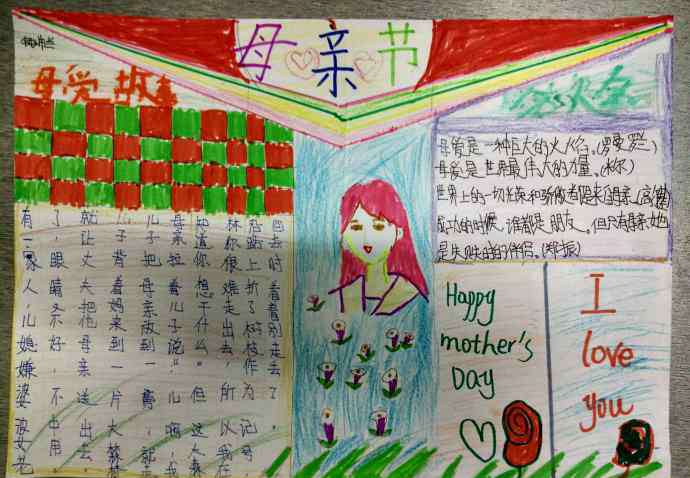 母亲节
母爱故事
有一家人儿媳嫌婆婆
了，眼睛不好，不中用，
就让丈夫把他母亲送出去，
儿子背着妈妈来到一片大森林
儿子把母亲放到一
母亲拉着儿子说“儿啊，我
知道你想干什么”但这大森
林你很难走出去，所以我在
路上折了树枝作为记号，
回去时看着别走去了。
母爱是一种巨大的火焰。(罗曼罗兰)
母爱是世界最伟大的力量。(米尔)
世界上的一切光荣和骄傲都来自母亲(高尔基)
成功的时候，谁都是朋友。但只有母亲她
是失败的时的伴侣。(郑振)
Happy
mother's
DAY
I
love
you